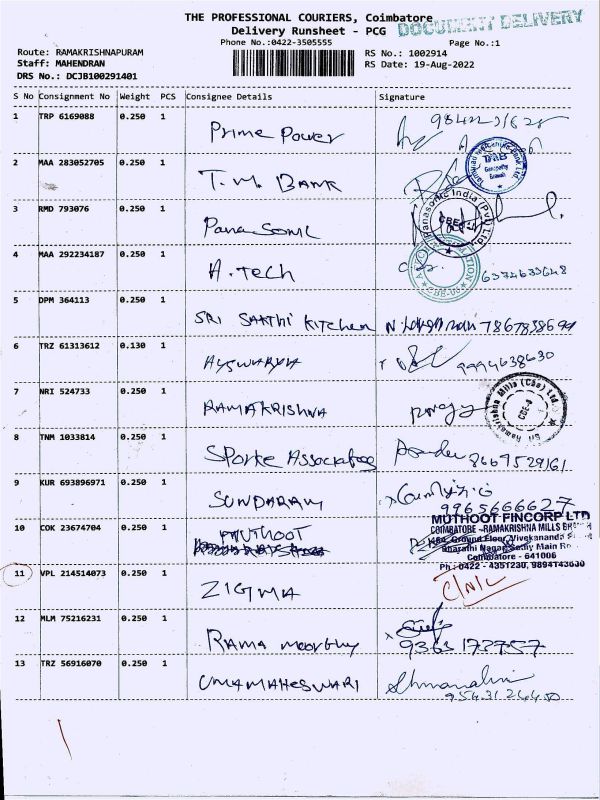 THE PROFESSIONAL COURIERS, Coimbatore
DOCUMENT DELIVERY
Delivery Runsheet - PCG
Phone No.:0422-3505555
Page No.:1
Route: RAMAKRISHNAPURAM
RS No.: 1002914
Staff: MAHENDRAN
RS Date: 19-Aug-2022
DRS No.: DCJB100291401
S No Consignment No Weight PCS Consignee Details Signature
1 TRP 6169088 0.250 1 Prime Power
2 MAA 283052705 0.250 1 T.M. BANK
TMB
3 RMD 793076 0.250 1 PanaSonic
Panasonic India (Pvt) Ltd.
4 MAA 292234187 0.250 1 A.Tech 6374633648
5 DPM 364113 0.250 1 SRI SAKTHI Kitchen
6 TRZ 61313612 0.130 1 AISWARYA 9994638630
7 NRI 524733 0.250 1 RAMAKRISHNA
Sri Ramakrishna Mills (Cbe) Ltd.
CBE-6
8 TNM 1033814 0.250 1 SPorke Associates
9 KUR 693896971 0.250 1 SUNDARAM 9965666627
10 COK 23674704 0.250 1 MUTHOOT
MUTHOOT FINCORP LTD
COIMBATORE -RAMAKRISHNA MILLS BR
Ground Floor, Vivekananda
Bharathi Nagar, Main
Coimbatore - 641006
Ph : 0422 - 4351230, 9894143630
11 VPL 214514073 0.250 1 ZIGMA
12 MLM 75216231 0.250 1 RAMA MOORTHY
13 TRZ 56916070 0.250 1 UMAMAHESWARI